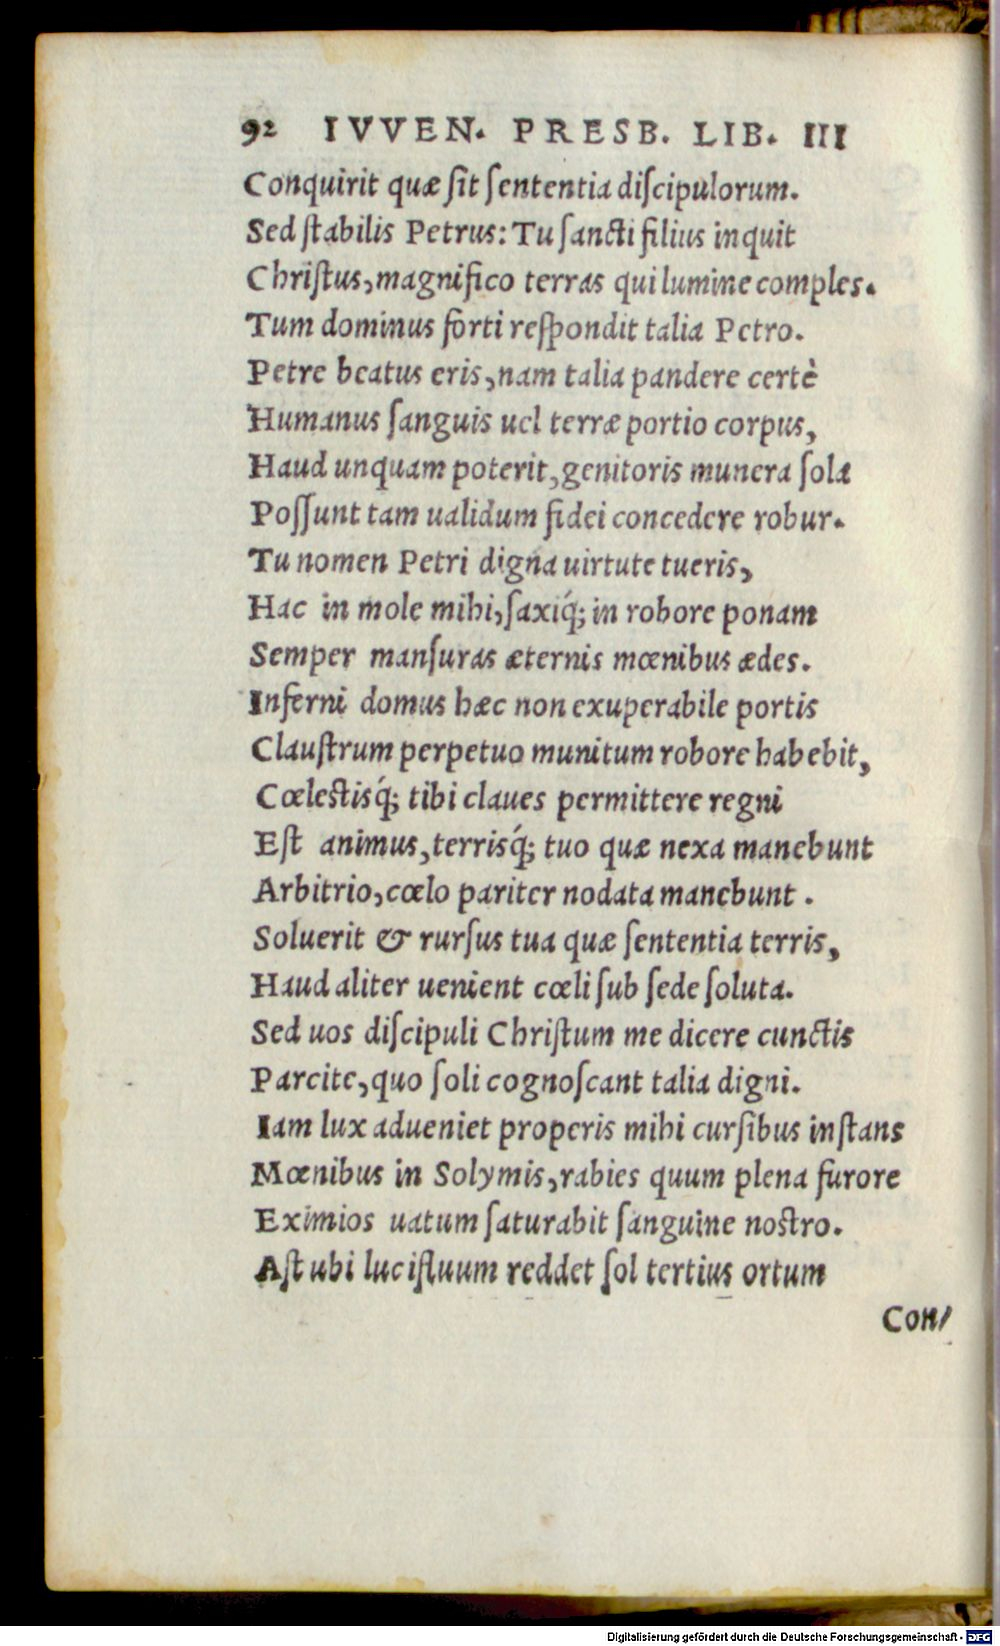 92 IVVEN. PRESB. LIB. III
Conquirit quæ ſit ſententia diſcipulorum.
Sed ſtabilis Petrus: Tu ſancti filius inquit
Chriſtus, magnifico terras qui lumine comples.
Tum dominus forti reſpondit talia Petro.
Petre beatus eris, nam talia pandere certè
Humanus ſanguis uel terræ portio corpus,
Haud unquam poterit, genitoris munera ſolæ
Poſſunt tam ualidum fidei concedere robur.
Tu nomen Petri digna uirtute tueris,
Hac in mole mihi, ſaxiq́; in robore ponam
Semper manſuras æternis mœnibus ædes.
Inferni domus hæc non exuperabile portis
Clauſtrum perpetuo munitum robore habebit,
Cœleſtisq́; tibi claues permittere regni
Eſt animus, terrisq́; tuo quæ nexa manebunt
Arbitrio, cœlo pariter nodata manebunt.
Soluerit & rurſus tua quæ ſententia terris,
Haud aliter uenient cœli ſub ſede ſoluta.
Sed uos diſcipuli Chriſtum me dicere cunctis
Parcite, quo ſoli cognoſcant talia digni.
Iam lux adueniet properis mihi curſibus inſtans
Mœnibus in Solymis, rabies quum plena furore
Eximios uatum ſaturabit ſanguine noſtro.
Aſt ubi lucifluum reddet ſol tertius ortum
Con/
Digitalisierung gefördert durch die Deutsche Forschungsgemeinschaft - DFG